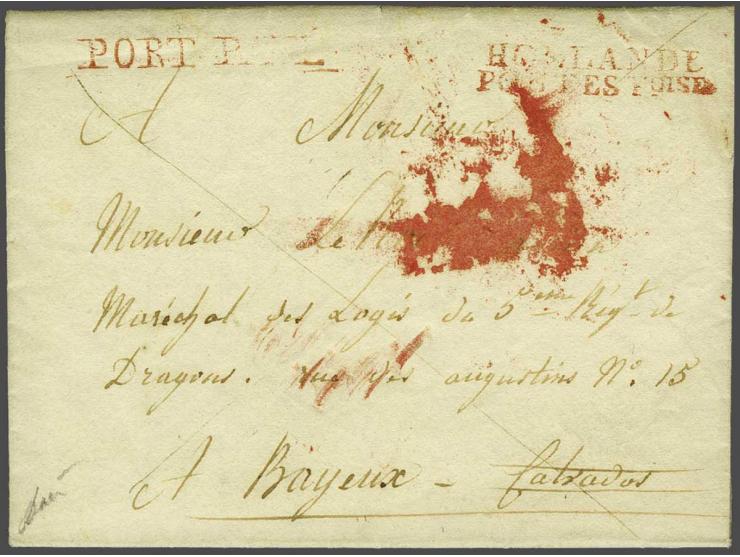 PORT PAYE
HOLLANDE
A Monsieur
Monsieur Le
Maréchal des Logis du 5eme Régt. de
Dragons. rue des augustins No. 15
A Bayeux - Calvados